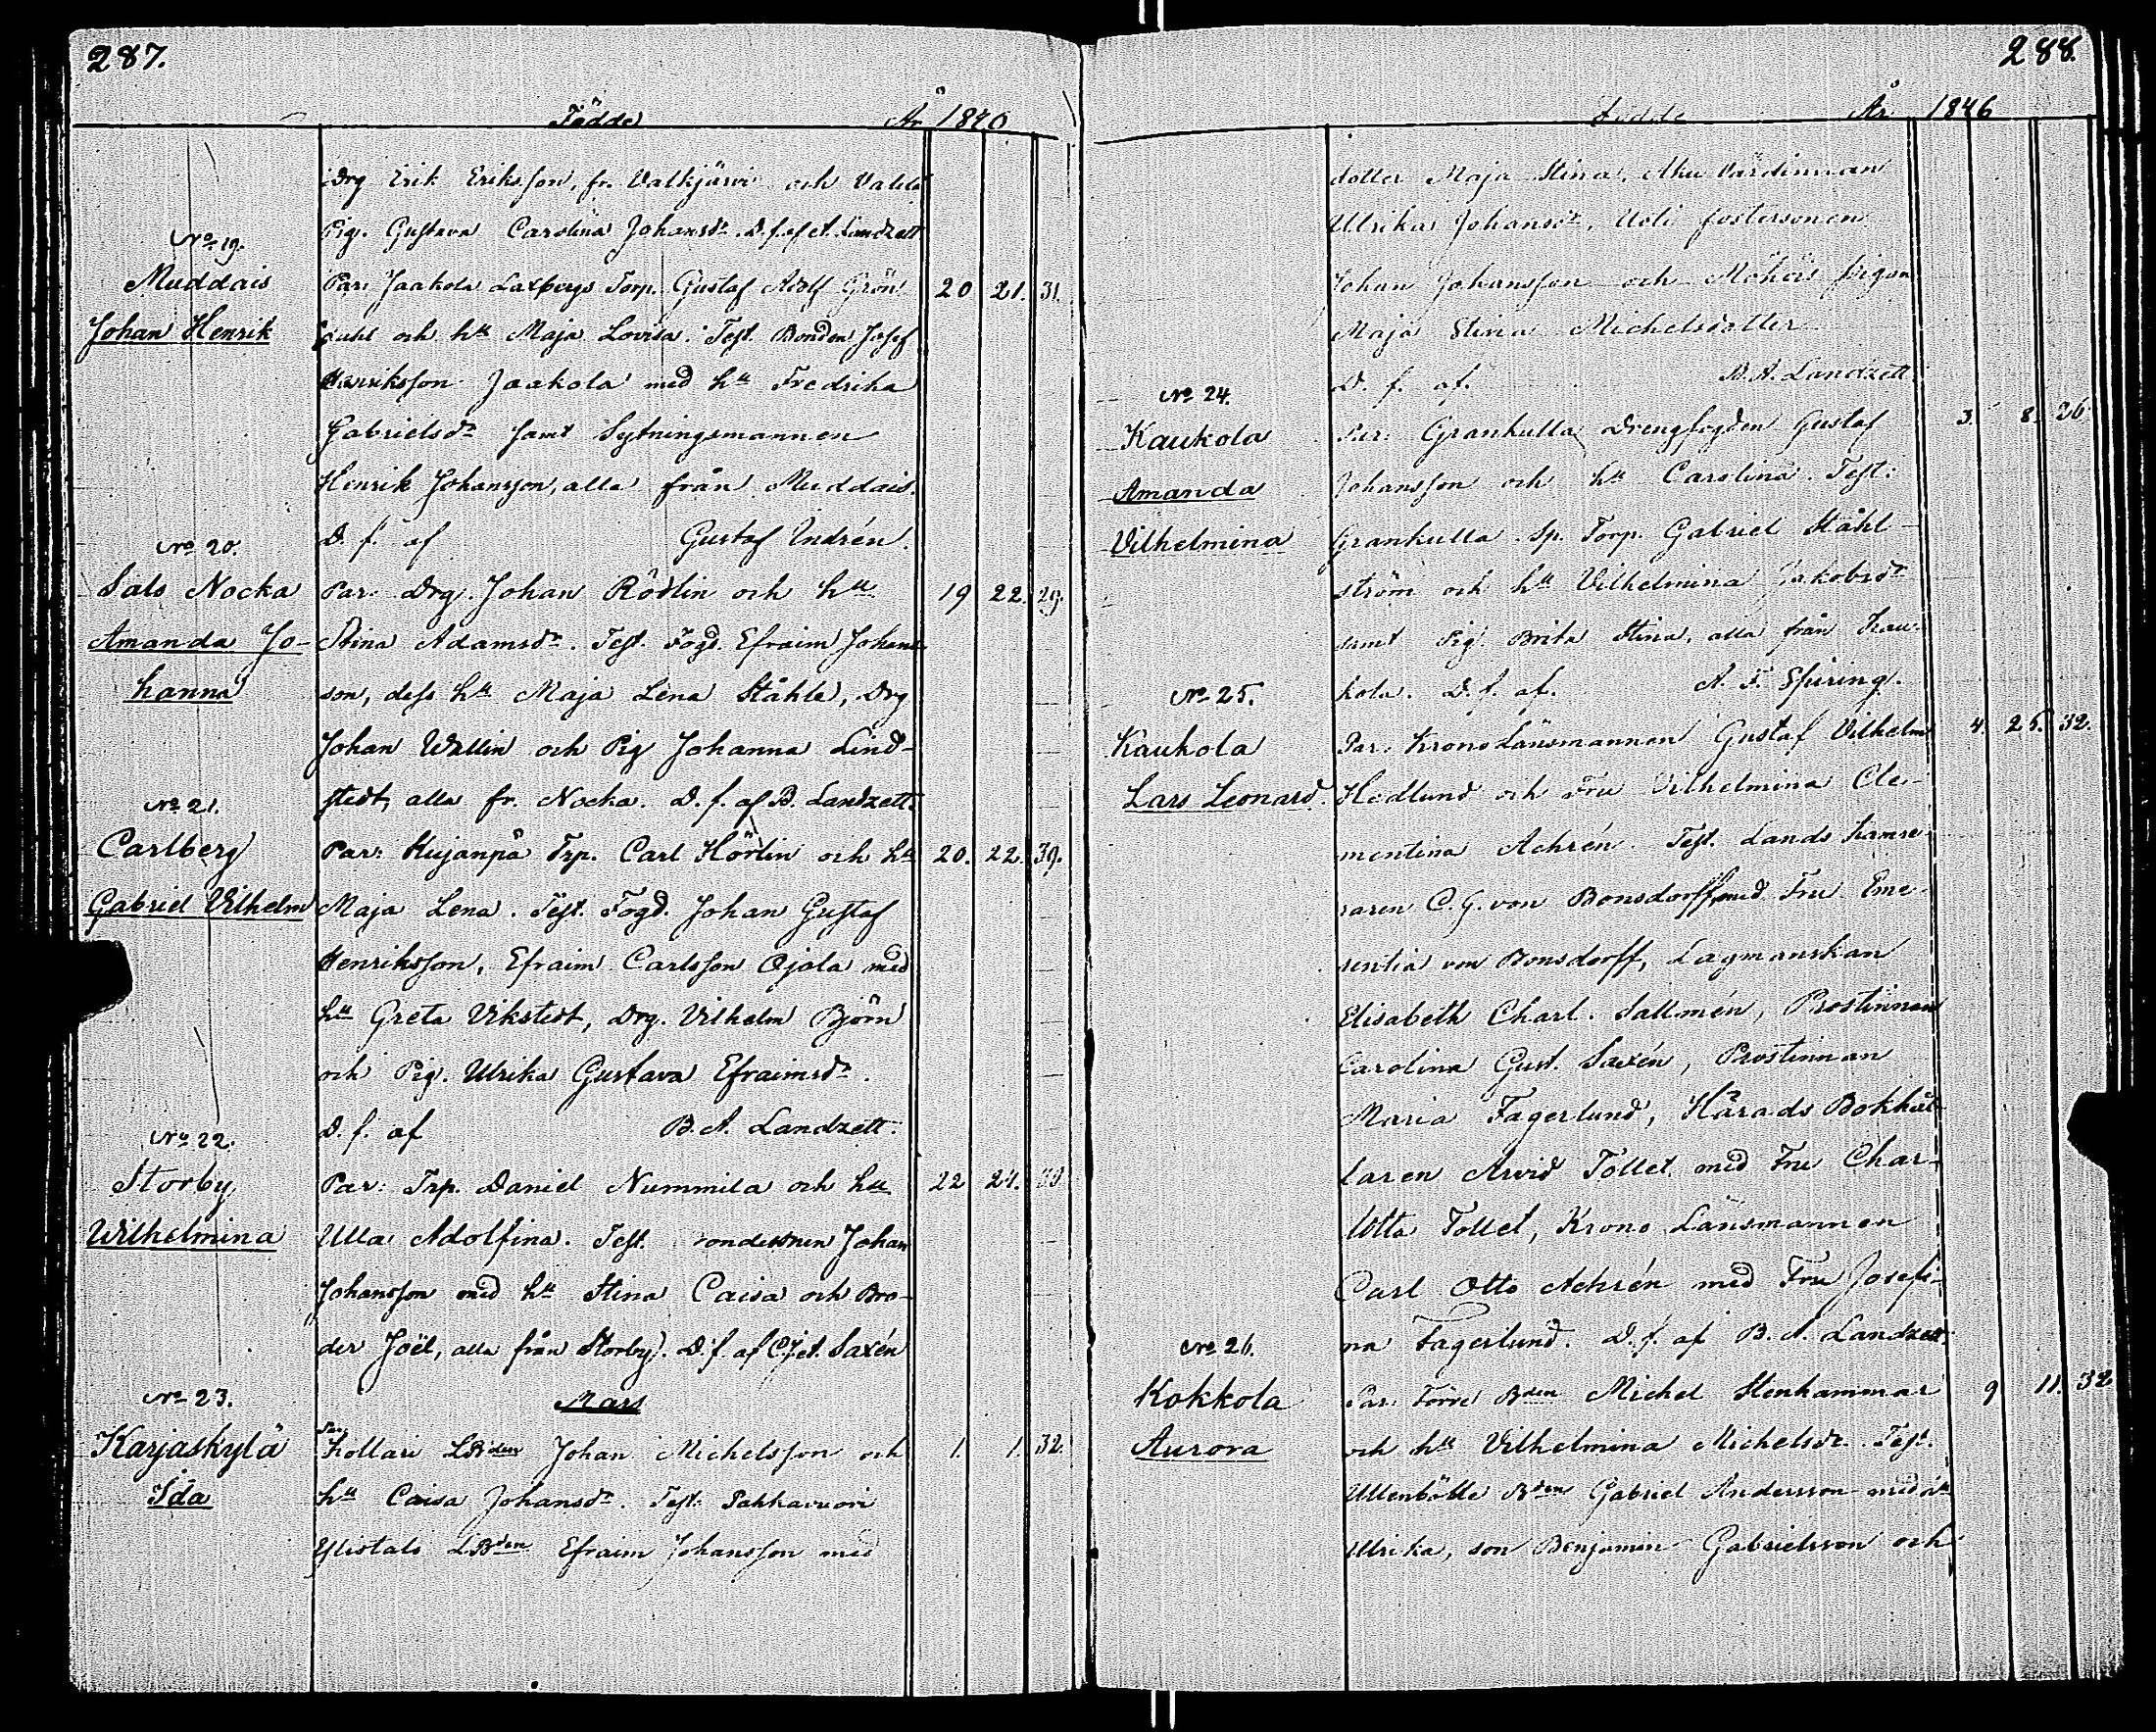 287.
Födde År 1846
Drg Erik Eriksson, fr. Valkjärvi och
Pig. Gustava Carolina Johansdr. D. f. af A. Landzett
No 19.
Muddais
Johan Henrik
Par. Jaakola Laxbergs Torp. Gustaf Adolf Grön- 20 21. 31.
dahl och hu Maja Lovisa. Test. Bonden Josef
Henriksson Jaakola med hu Fredrika
Gabrielsdr samt Sytningsmannen
Henrik Johansson, alla från Muddais.
D. f. af Gustaf Indrén.
No 20.
Salo Nocka
Amanda Jo-
hanna
Par. Drg. Johan Rödlin och hu 19 22. 29.
Stina Adamsdr. Test. Fogd. Efraim Johans-
son, dess hu Maja Lena Ståhle, Drg
Johan Wallin och Pig Johanna Lind-
stedt, alla fr. Nocka. D. f. af B. Landzett.
No 21.
Carlberg
Gabriel Vilhelm
Par: Kujanpä Trp. Carl Hörlin och hu 20. 22. 39.
Maja Lena. Test. Fogd. Johan Gustaf
Henriksson, Efraim Carlsson Ojala med
hu Greta Vikstedt, Drg. Vilhelm Björn
och Pig. Ulrika Gustava Efraimsdr.
D. f. af B. A. Landzett.
No 22.
Storby
Wilhelmina
Par: Trp. Daniel Nummila och hu 22 24. 30
Ulla Adolfina. Test. Johan
Johansson med hu Stina Caisa och Bro-
der Joël, alla från Storby. D. f. af Saxén
No 23.
Karjaskylä
Ida
Mars
Par. Kollari LBden Johan Michelsson och 1. 1. 32.
hu Caisa Johansdr. Test. Pahkavuori
Ylistalo LBden Efraim Johansson med
288.
Födde År 1846
dotter Maja Stina, Aku Värdinnan
Ulrika Johansdr, Uoti fostersonen
Johan Johansson och pigan
Maja Stina Michelsdotter
D. f. af. B. A. Landzett
No 24.
Kaukola
Amanda
Vilhelmina
Par: Grankulla Drengfogden Gustaf 3. 8. 26
Johansson och hu Carolina. Test:
Grankulla Sp. Torp. Gabriel Ståhl-
ström och hu Vilhelmina Jakobsdr
samt Pig. Brita Stina, alla från Kau-
kola. D. f. af. A. F. Spiring.
No 25.
Kaukola
Lars Leonard.
Par. Krono Länsmannen Gustaf Vilhelm 4. 25. 32.
Hedlund och Fru Vilhelmina Cle-
mentina Achrén. Test. Lands kamre-
raren C. G. von Bonsdorff med Fru Eme-
rentia von Bonsdorff, Lagmanskan
Elisabeth Charl. Sallmén, Prostinnan
Carolina Gust. Saxén, Prostinnan
Maria Fagerlund, Härads Bokhål-
laren Arvid Tollet med Fru Char-
lotta Tollet, Krono Länsmannen
Carl Otto Achrén med Fru Josefi-
na Fagerlund. D. f. af B. A. Landzett
No 26.
Kokkola
Aurora
Par. Bden Michel Stenhammar 9 11. 32
och hu Vilhelmina Michelsdr. Test.
Ullenböle Bden Gabriel Andersson med hu
Ulrika, son Benjamin Gabrielsson och